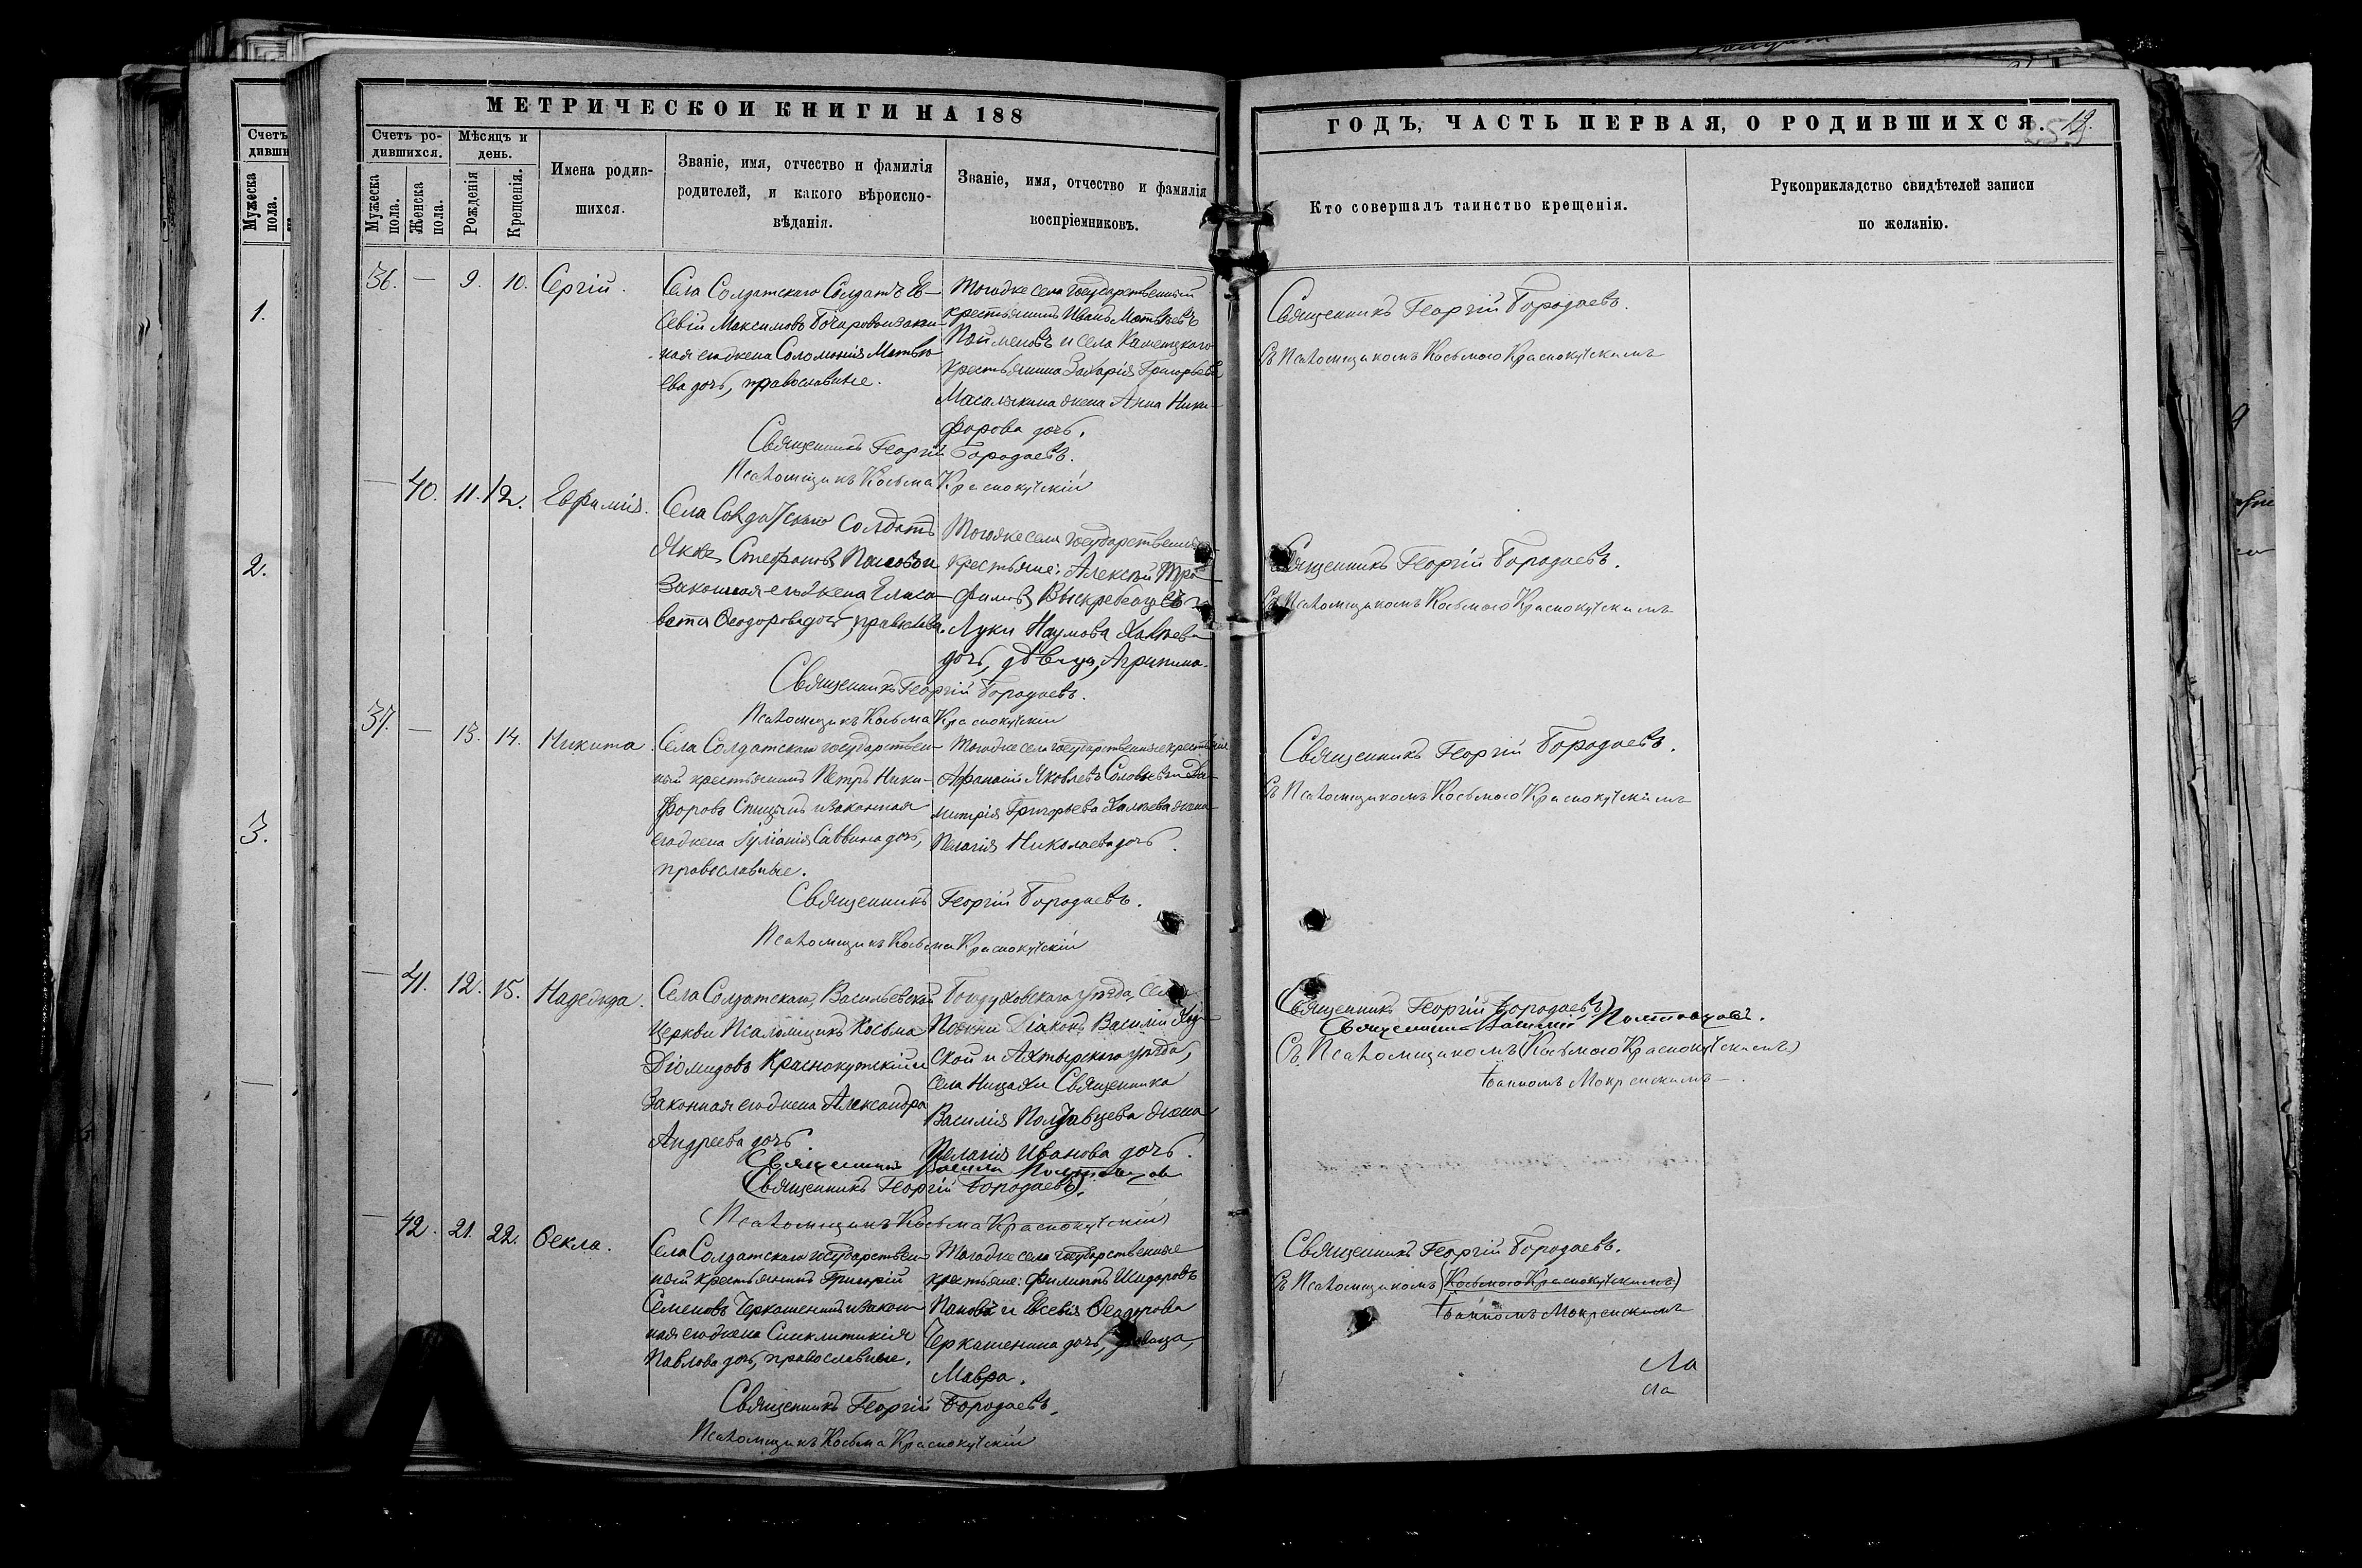 МЕТРИЧЕСКОЙ КНИГИ НА 188
Счетъ ро-
дившихся.
Мѣсяцъ и
день.
Мужеска
пола.
Женска
пола.
Рожденія
Крещенія.
Имена родив-
шихся.
Званіе, имя, отчество и фамилія
родителей, и какого вѣроиспо-
вѣданія.
Званіе, имя, отчество и фамилія
воспріемниковъ.
36. — 9. 10. Сергій.
Села Солдатскаго Солдатъ Ев-
севій Максимовъ Бочаровъ и закон-
ная его жена Соломонія Матвѣ-
ева дочь, православные.
Того же села государственный
крестьянинъ Иванъ Матвѣевъ
и села Каменецкаго
крестьянина Захарія Григорьева
Масалыкина жена Анна Ники-
форова дочь.
Священникъ Георгій Бородаевъ.
Псаломщикъ Косьма Краснокутскій
— 40. 11. 12. Евфимія.
Села Солдатскаго солдатъ
Яковъ Стефановъ Пановъ и
законная его жена Елиса-
вета Ѳеодорова дочь, правосла.
Того же села государственные
крестьяне: Алексѣй Тро-
фимовъ и
Луки Наумова
дочь, дѣвица, Агрипина.
Священникъ Георгій Бородаевъ.
Псаломщикъ Косьма Краснокутскій
37. — 13. 14. Никита.
Села Солдатскаго государствен-
ный крестьянинъ Петръ Ники-
форовъ Спицынъ и законная
его жена Іуліанія Саввина дочь,
православные.
Того же села государственные крестьяне
Афанасій Яковлевъ Соловьевъ и Ди-
митрія Григорьева жена
Пелагія Николаева дочь.
Священникъ Георгій Бородаевъ.
Псаломщикъ Косьма Краснокутскій
— 41. 12. 15. Надежда.
Села Солдатскаго, Васильевской
церкви Псаломщикъ Косьма
Діомидовъ Краснокутскій и
законная его жена Александра
Андреева дочь.
Богодуховскаго уѣзда, села
Діаконъ Василій
и Ахтырскаго уѣзда,
села Ницахи Священника
Василія Полтавцева жена
Пелагія Иванова дочь.
Священникъ Василій Полтавцевъ
(Священникъ Георгій Бородаевъ).
(Псаломщикъ Косьма Краснокутскій)
— 42. 21. 22. Ѳекла.
Села Солдатскаго государствен-
ный крестьянинъ Григорій
Семеновъ Черкашенинъ и закон-
ная его жена Синклитикія
Павлова дочь, православные.
Того же села государственные
крестьяне: Филиппъ Исидоровъ
Пановъ и Евсевія Ѳеодорова
Черкашенина дочь, дѣвица,
Мавра.
Священникъ Георгій Бородаевъ.
Псаломщикъ Косьма Краснокутскій
ГОДЪ, ЧАСТЬ ПЕРВАЯ, О РОДИВШИХСЯ.
Кто совершалъ таинство крещенія.
Рукоприкладство свидѣтелей записи
по желанію.
Священникъ Георгій Бородаевъ.
Съ Псаломщикомъ Косьмою Краснокутскимъ
Священникъ Георгій Бородаевъ.
Съ Псаломщикомъ Косьмою Краснокутскимъ
Священникъ Георгій Бородаевъ.
Съ Псаломщикомъ Косьмою Краснокутскимъ
Священникъ Георгій Бородаевъ)
Священникъ Василій Полтавцевъ.
Съ Псаломщикомъ (Косьмою Краснокутскимъ)
Іоанномъ Мокренскимъ.
Священникъ Георгій Бородаевъ.
Съ Псаломщикомъ (Косьмою Краснокутскимъ)
Іоанномъ Мокренскимъ
Счетъ
дивши
Мужеска
пола.
1.
2.
3.